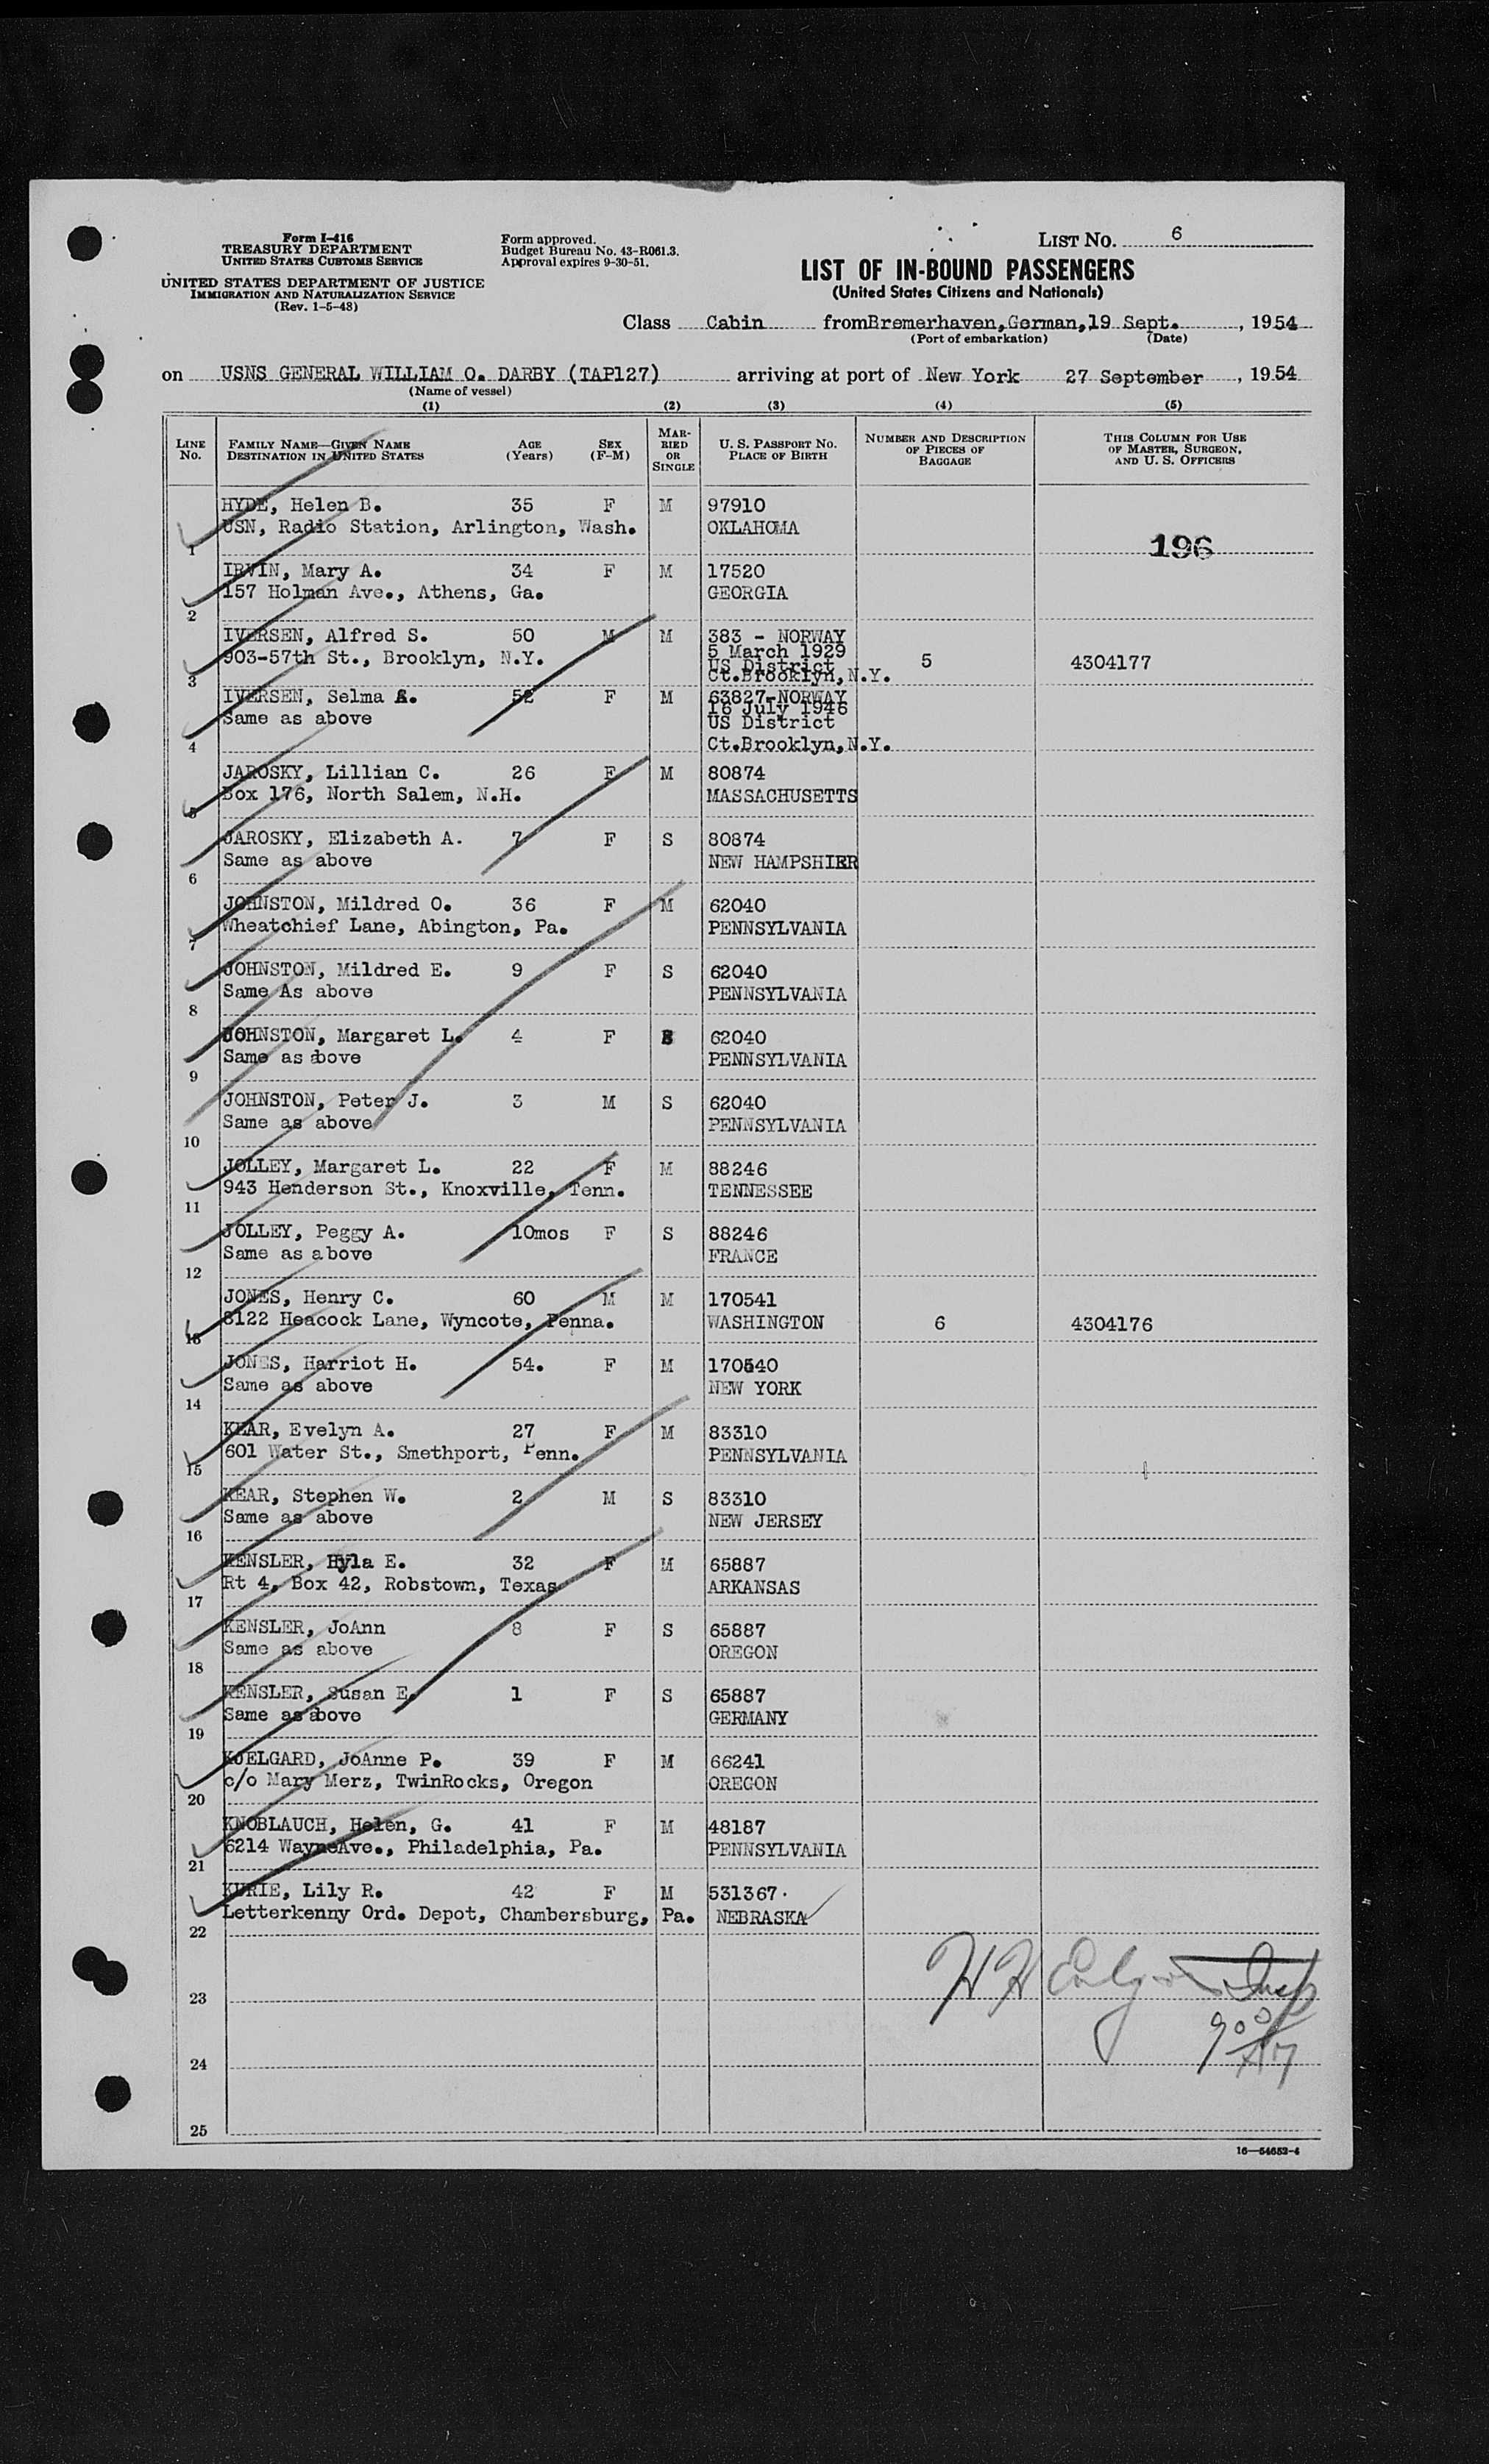 Form I-416
TREASURY DEPARTMENT
UNITED STATES CUSTOMS SERVICE
UNITED STATES DEPARTMENT OF JUSTICE
IMMIGRATION AND NATURALIZATION SERVICE
(Rev. 1-5-48)
Form approved.
Budget Bureau No. 43-R061.3.
Approval expires 9-30-51.
LIST NO. 6
LIST OF IN-BOUND PASSENGERS
(United States Citizens and Nationals)
Class Cabin from Bremerhaven, German, 19 Sept. , 1954
(Port of embarkation) (Date)
on USNS GENERAL WILLIAM O. DARBY (TAP127) arriving at port of New York 27 September , 1954
(Name of vessel)
(1) (2) (3) (4) (5)
LINE NO. FAMILY NAME—GIVEN NAME DESTINATION IN UNITED STATES AGE (Years) SEX (F-M) MARRIED OR SINGLE U. S. PASSPORT NO. PLACE OF BIRTH NUMBER AND DESCRIPTION OF PIECES OF BAGGAGE THIS COLUMN FOR USE OF MASTER, SURGEON, AND U. S. OFFICERS
HYDE, Helen B. 35 F M 97910
USN, Radio Station, Arlington, Wash. OKLAHOMA
1 196
IRVIN, Mary A. 34 F M 17520
157 Holman Ave., Athens, Ga. GEORGIA
2
IVERSEN, Alfred S. 50 M M 383 - NORWAY
5 March 1929
903-57th St., Brooklyn, N.Y. US District 5 4304177
3 Ct.Brooklyn,N.Y.
IVERSEN, Selma 52 F M 63827-NORWAY
16 July 1946
Same as above US District
4 Ct.Brooklyn,N.Y.
JAROSKY, Lillian C. 26 F M 80874
Box 176, North Salem, N.H. MASSACHUSETTS
5
JAROSKY, Elizabeth A. 7 F S 80874
Same as above NEW HAMPSHIER
6
JOHNSTON, Mildred O. 36 F M 62040
Wheatchief Lane, Abington, Pa. PENNSYLVANIA
7
JOHNSTON, Mildred E. 9 F S 62040
Same As above PENNSYLVANIA
8
JOHNSTON, Margaret L. 4 F S 62040
Same as above PENNSYLVANIA
9
JOHNSTON, Peter J. 3 M S 62040
Same as above PENNSYLVANIA
10
JOLLEY, Margaret L. 22 F M 88246
943 Henderson St., Knoxville, Tenn. TENNESSEE
11
JOLLEY, Peggy A. 10mos F S 88246
Same as above FRANCE
12
JONES, Henry C. 60 M M 170541
8122 Heacock Lane, Wyncote, Penna. WASHINGTON 6 4304176
13
JONES, Harriot H. 54. F M 170540
Same as above NEW YORK
14
KEAR, Evelyn A. 27 F M 83310
601 Water St., Smethport, Penn. PENNSYLVANIA
15
KEAR, Stephen W. 2 M S 83310
Same as above NEW JERSEY
16
KENSLER, Hyla E. 32 F M 65887
Rt 4, Box 42, Robstown, Texas ARKANSAS
17
KENSLER, JoAnn 8 F S 65887
Same as above OREGON
18
KENSLER, Susan E. 1 F S 65887
Same as above GERMANY
19
KJELGARD, JoAnne P. 39 F M 66241
c/o Mary Merz, TwinRocks, Oregon OREGON
20
KNOBLAUCH, Helen, G. 41 F M 48187
6214 WayneAve., Philadelphia, Pa. PENNSYLVANIA
21
KURIE, Lily R. 42 F M 531367.
Letterkenny Ord. Depot, Chambersburg, Pa. NEBRASKA
22
23
24
25
16—54652-4